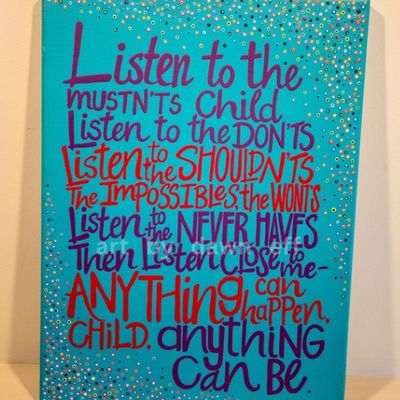 Listen to the
MUSTN'TS Child
Listen to the DON'TS
Listen to the SHOULDN'TS
The IMPOSSIBLES, the WONTS
Listen to the NEVER HAVES
art by dawn eff
Then Listen Close to me-
ANYTHING can happen,
CHILD, anything
Can BE.